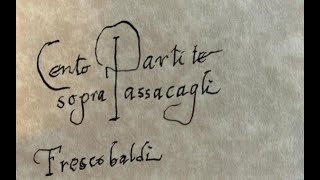 Cento Partite
sopra Passacagli
Frescobaldi